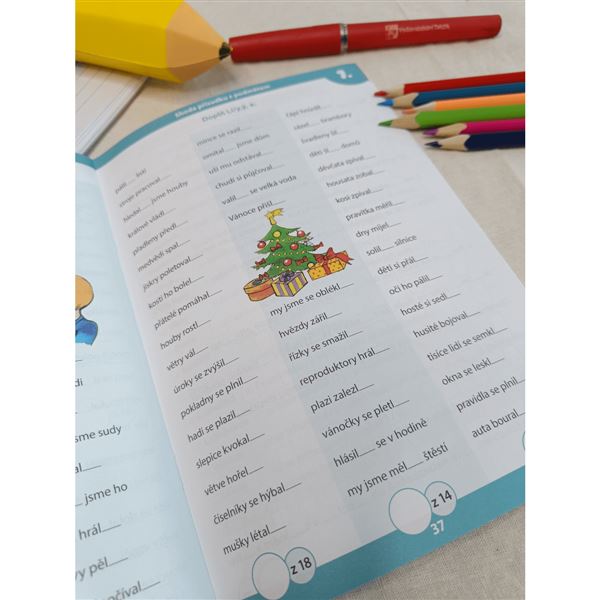 Shoda přísudku s podmětem
7.
Doplň i,í/y,ý, a.
pálil___
stroje pracoval___
hledal___ jsme houby
králové vládl___
předleny předl___
medvědi spal___
jiskry poletoval___
kosti ho bolel___
přátelé pomáhal___
houby rostl___
větry vál___
úroky se zvýšil___
pokladny se plnil___
hadi se plazil___
slepice kvokal___
větve hořel___
číselníky se hýbal___
mušky létal___
z 18
mince se razil___
umítal___ jsme dům
uši mu odstával___
chudí si půjčoval___
valil___ se velká voda
Vánoce přišl___
my jsme se oblékl___
hvězdy zářil___
řízky se smažil___
reproduktory hrál___
plazi zalezl___
vánočky se pletl___
hlásil___ se v hodině
my jsme měl___ štěstí
z 14
brambory
švadleny šil___
děti šl___ domů
děvčata zpíval___
housata zobal___
kosi zpíval___
pravítka měřil___
dny míjel___
solil___ silnice
děti si přál___
oči ho pálil___
hosté si sedl___
husité bojoval___
tisíce lidí se semkl___
okna se leskl___
pravidla se plnil___
auta boural___
37
di
jsme sudy
al___
jsme ho
hrál___
vy pěl___
počíval___